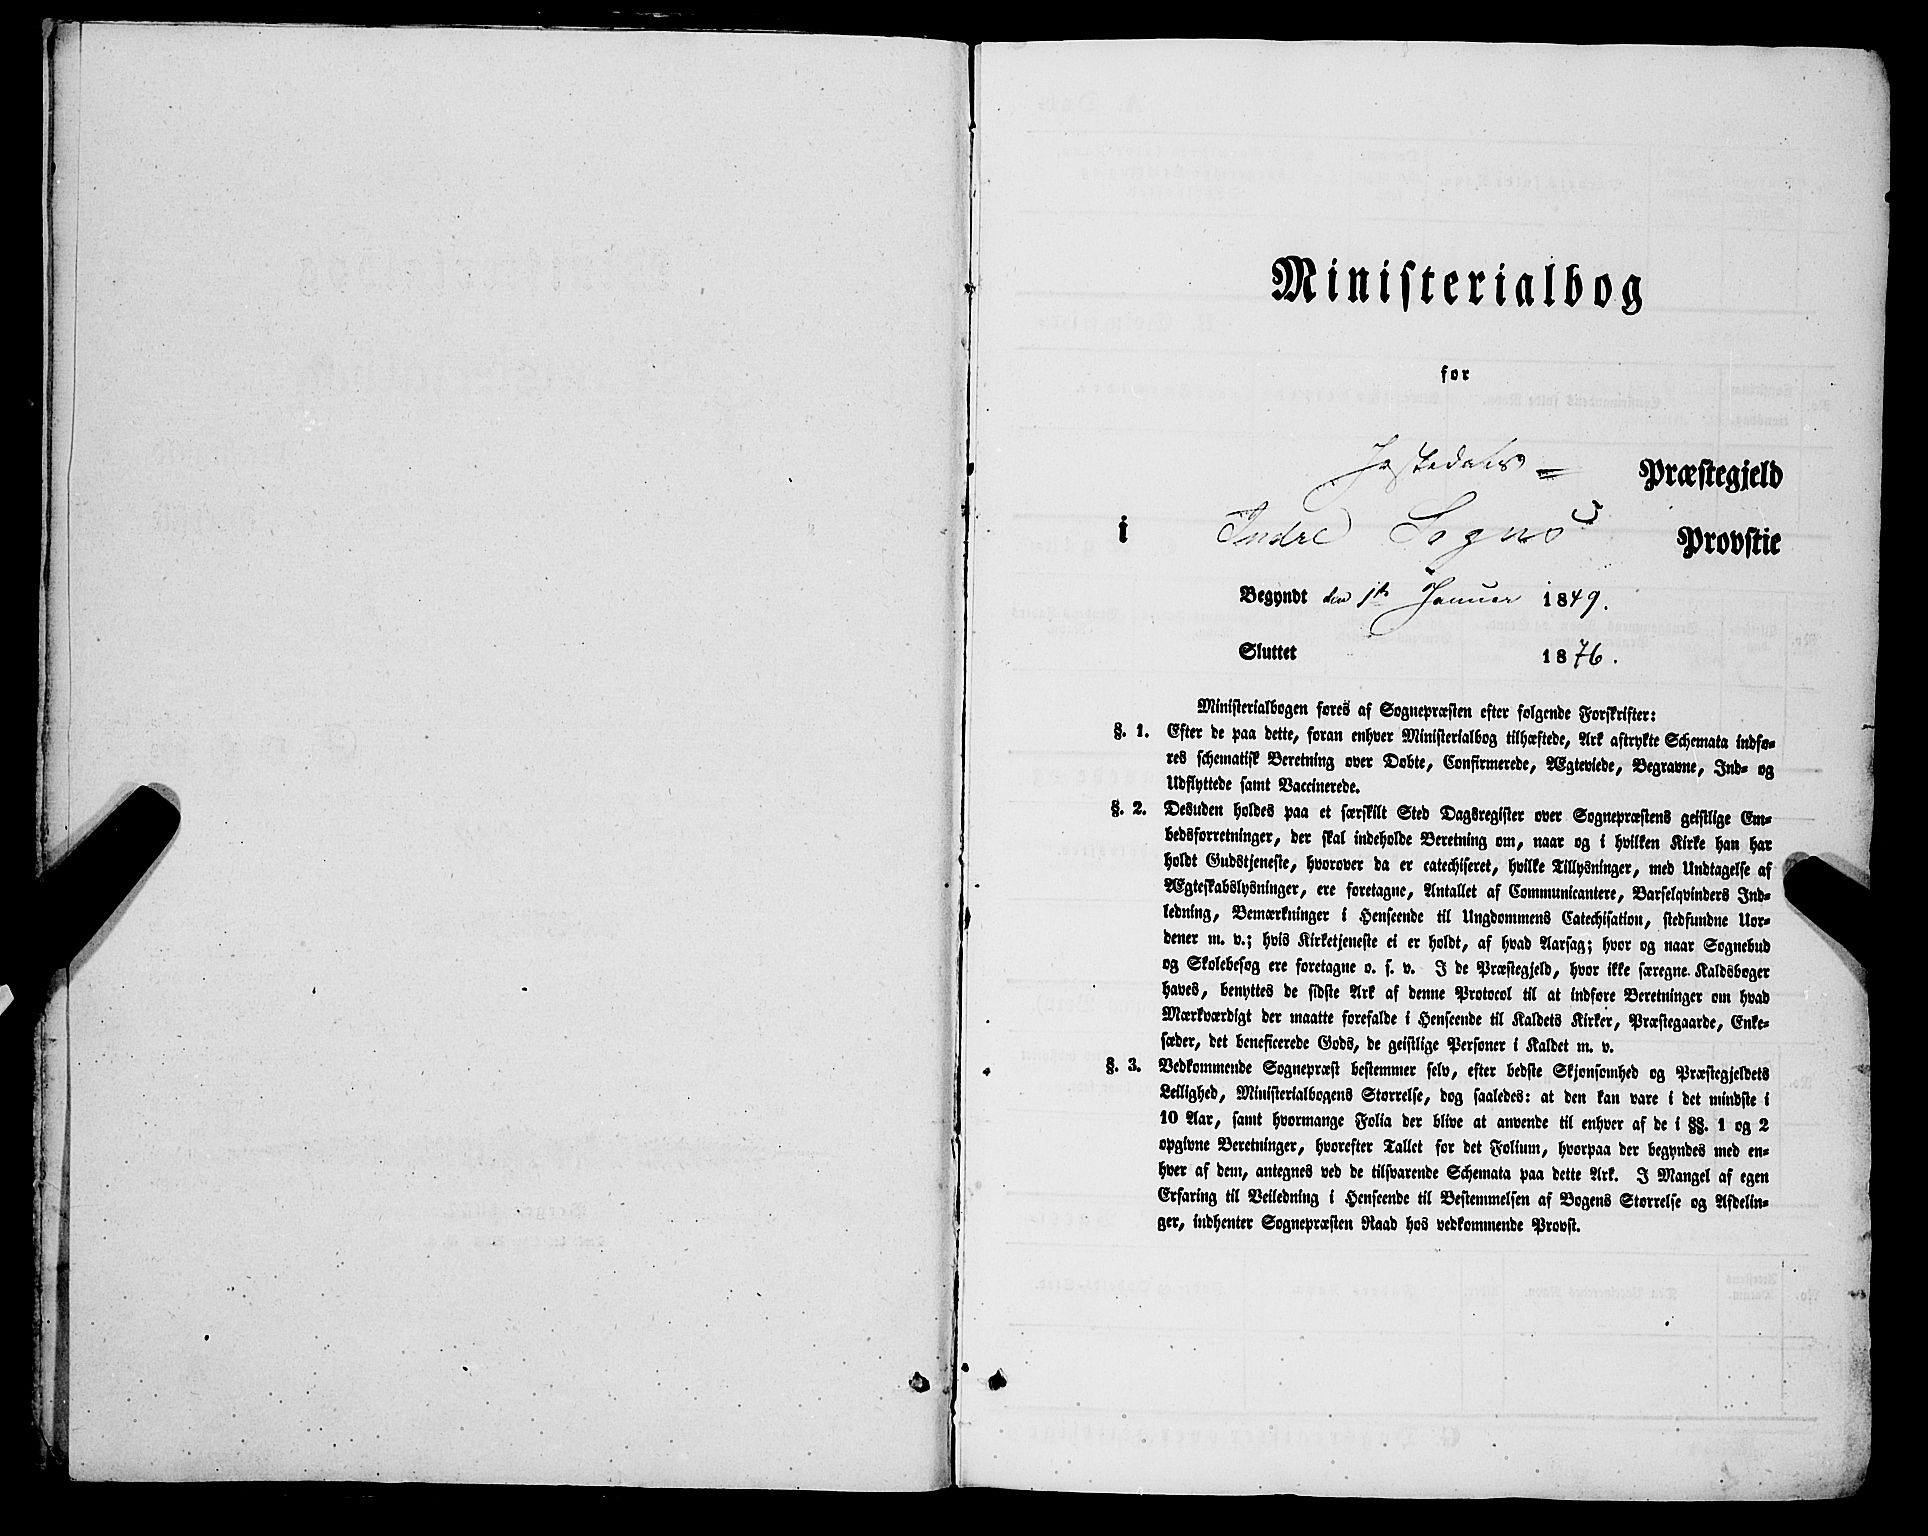 Ministerialbog
for
Jostedals Præstegjeld
i Indre Sogns Provstie
Begyndt den 1ste Januar 1849.
Sluttet 1876.
Ministerialbogen føres af Sognepræsten efter følgende Forskrifter:
§. 1. Efter de paa dette, foran enhver Ministerialbog tilhæftede, Ark aftrykte Schemata indfø-
res schematisk Beretning over Døbte, Confirmerede, Ægteviede, Begravne, Ind- og
Udflyttede samt Vaccinerede.
§. 2. Desuden holdes paa et særskilt Sted Dagsregister over Sognepræstens geistlige Em-
bedsforretninger, der skal indeholde Beretning om, naar og i hvilken Kirke han har
holdt Gudstjeneste, hvorover da er catechiseret, hvilke Tillysninger, med Undtagelse af
Ægteskabslysninger, ere foretagne, Antallet af Communicantere, Barselqvinders Ind-
ledning, Bemærkninger i Henseende til Ungdommens Catechisation, stedfundne Uor-
dener m. v.; hvis Kirketjeneste ei er holdt, af hvad Aarsag; hvor og naar Sognebud
og Skolebesøg ere foretagne o. s. v. I de Præstegjeld, hvor ikke særegne Kaldsbøger
haves, benyttes de sidste Ark af denne Protocol til at indføre Beretninger om hvad
Mærkværdigt der maatte forefalde i Henseende til Kaldets Kirker, Præstegaarde, Enke-
sæder, det beneficerede Gods, de geistlige Personer i Kaldet m. v.
§. 3. Vedkommende Sognepræst bestemmer selv, efter bedste Skjønsomhed og Præstegjeldets
Leilighed, Ministerialbogens Størrelse, dog saaledes: at den kan vare i det mindste i
10 Aar, samt hvormange Folia der blive at anvende til enhver af de i §§. 1 og 2
opgivne Beretninger, hvorefter Tallet for det Folium, hvorpaa der begyndes med en-
hver af dem, antegnes ved de tilsvarende Schemata paa dette Ark. I Mangel af egen
Erfaring til Veiledning i Henseende til Bestemmelsen af Bogens Størrelse og Afdelin-
ger, indhenter Sognepræsten Raad hos vedkommende Provst.